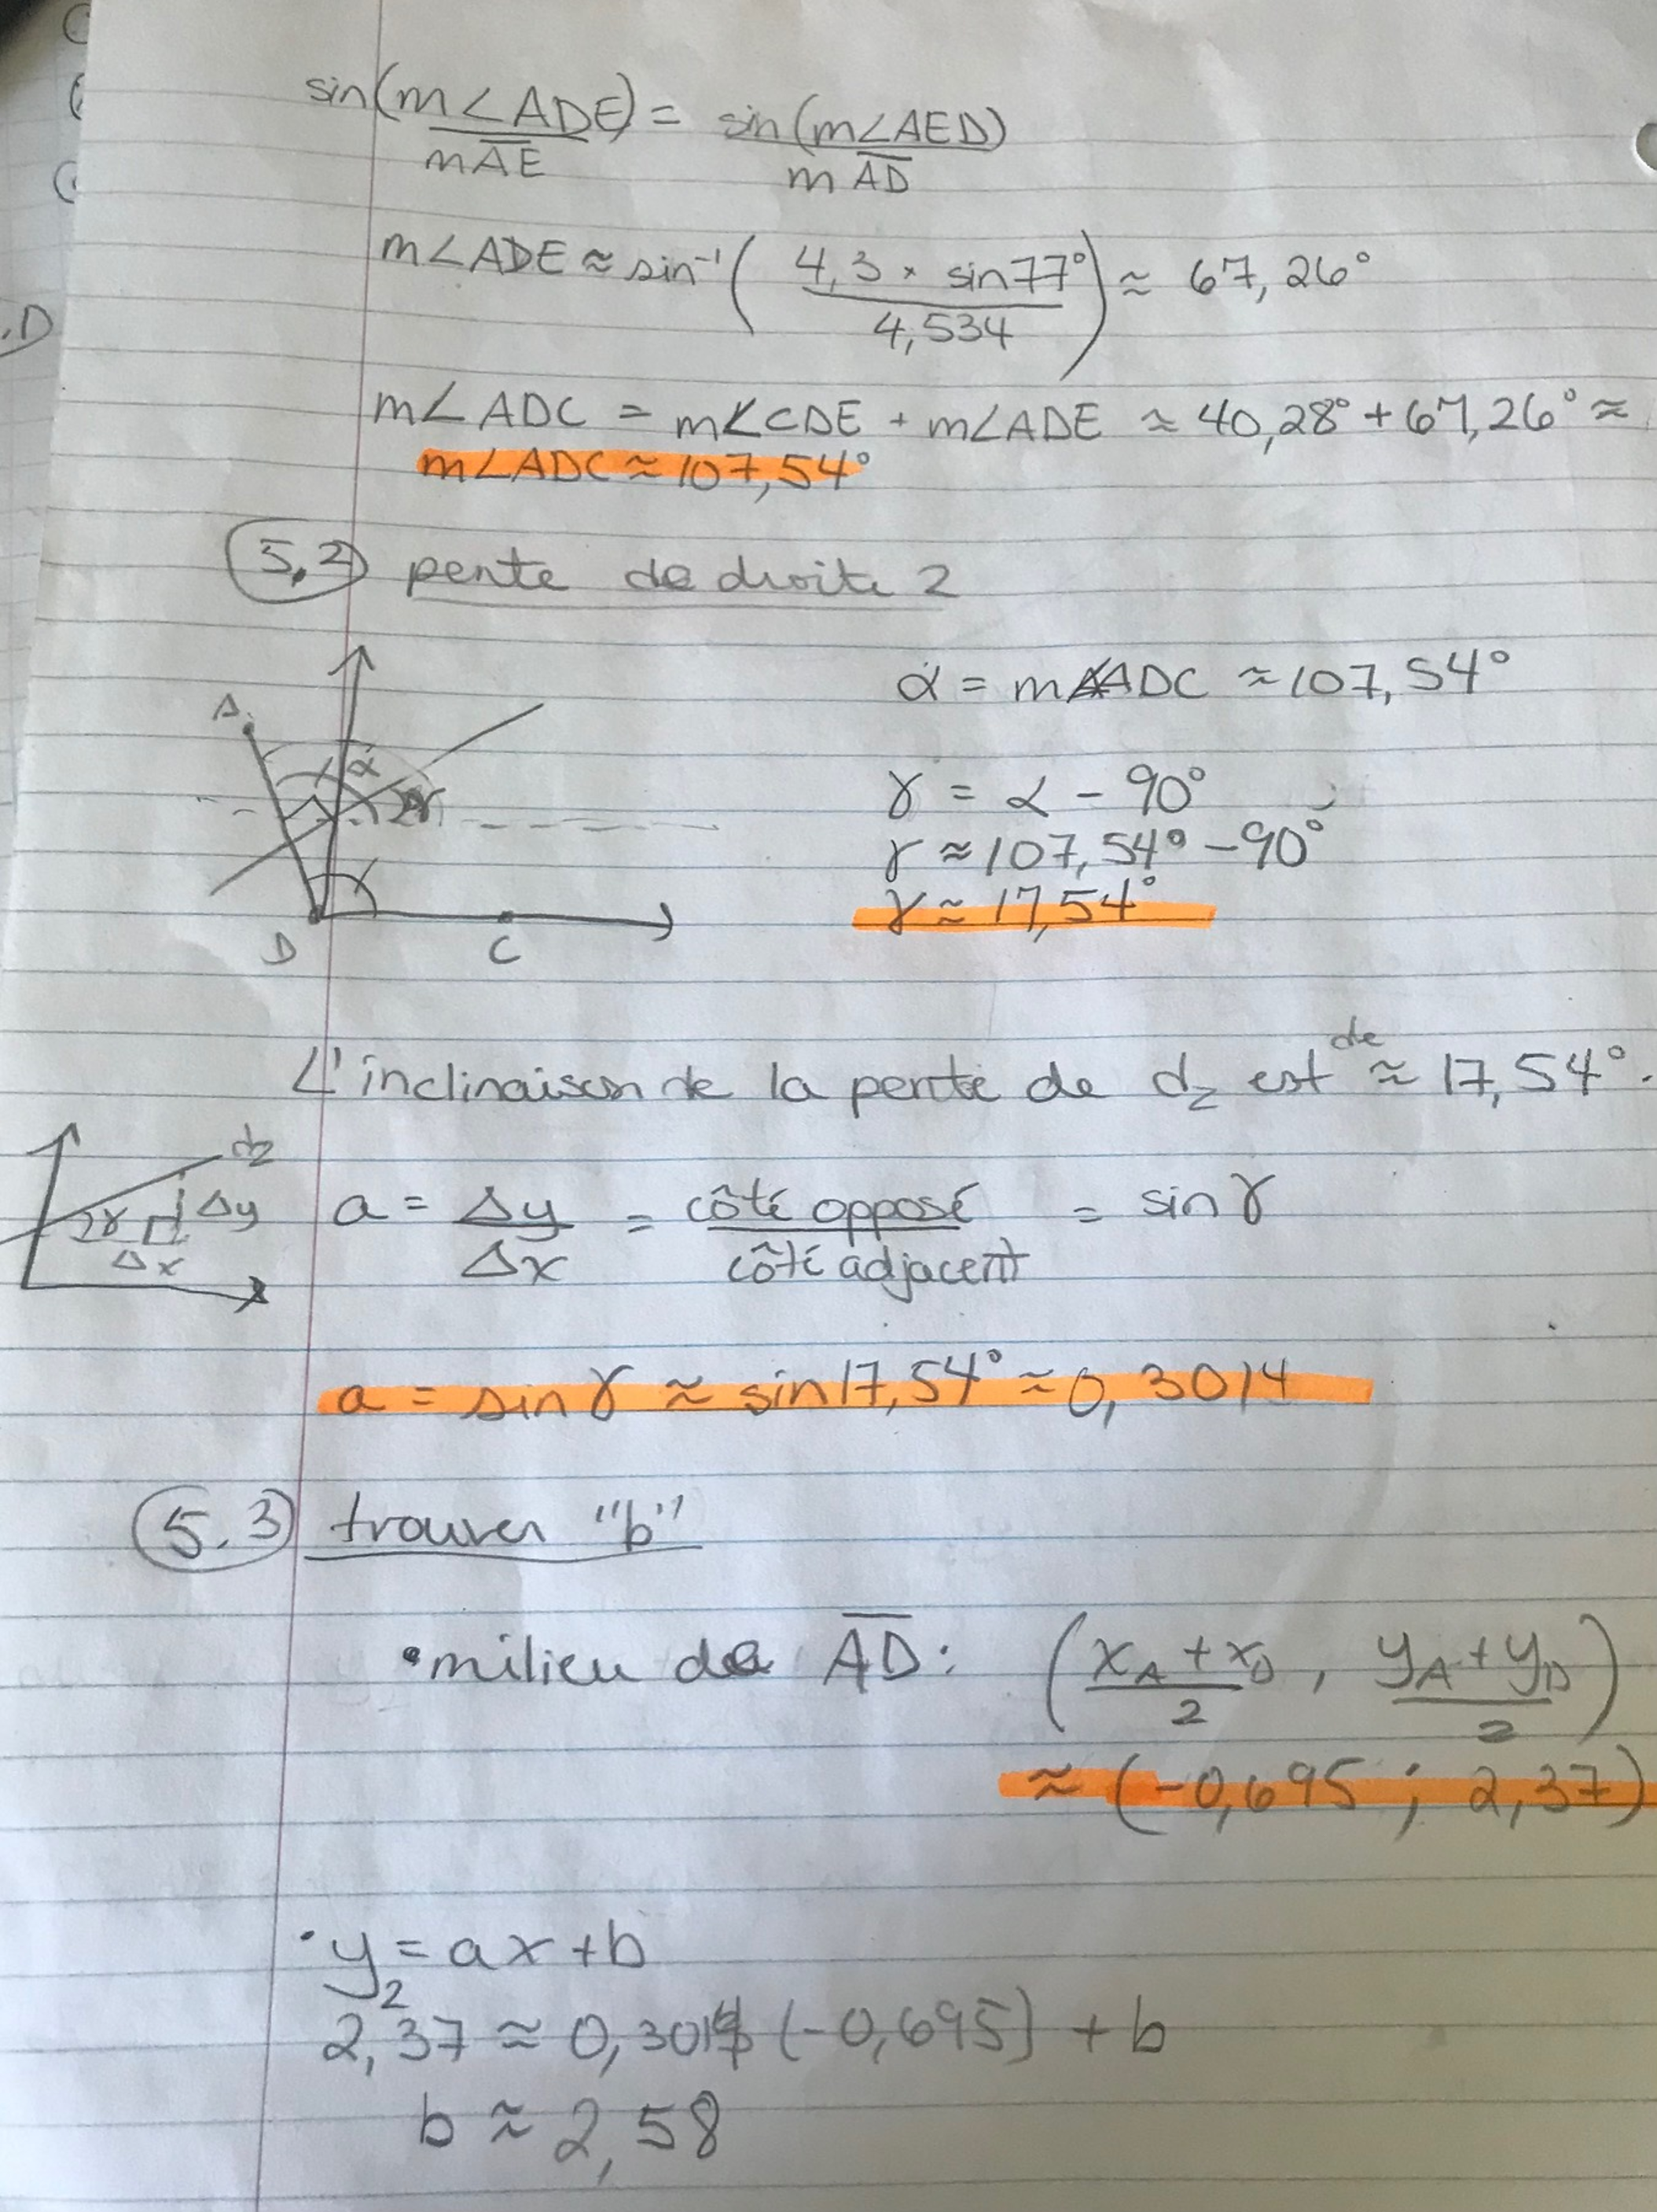 sin(m∠ADE) = sin(m∠AED)
mAE mAD
m∠ADE ≈ sin⁻¹( 4,3 × sin77° / 4,534 ) ≈ 67,26°
.D
m∠ADC = m∠CDE + m∠ADE ≈ 40,28° + 67,26° ≈
m∠ADC ≈ 107,54°
5.2 pente de droite 2
α = m∠ADC ≈ 107,54°
A
α
γ
γ = α - 90°
γ ≈ 107,54° - 90°
γ ≈ 17,54°
D C
L'inclinaison de la pente de d₂ est de ≈ 17,54°.
d₂
γ Δy
Δx
a = Δy / Δx = côté opposé / côté adjacent = sin γ
a = sin γ ≈ sin 17,54° ≈ 0,3014
5.3 trouver "b"
• milieu de AD : ( x_A + x_D / 2 , y_A + y_D / 2 )
≈ (-0,695 ; 2,37)
• y₂ = ax + b
2,37 ≈ 0,3014 (-0,695) + b
b ≈ 2,58